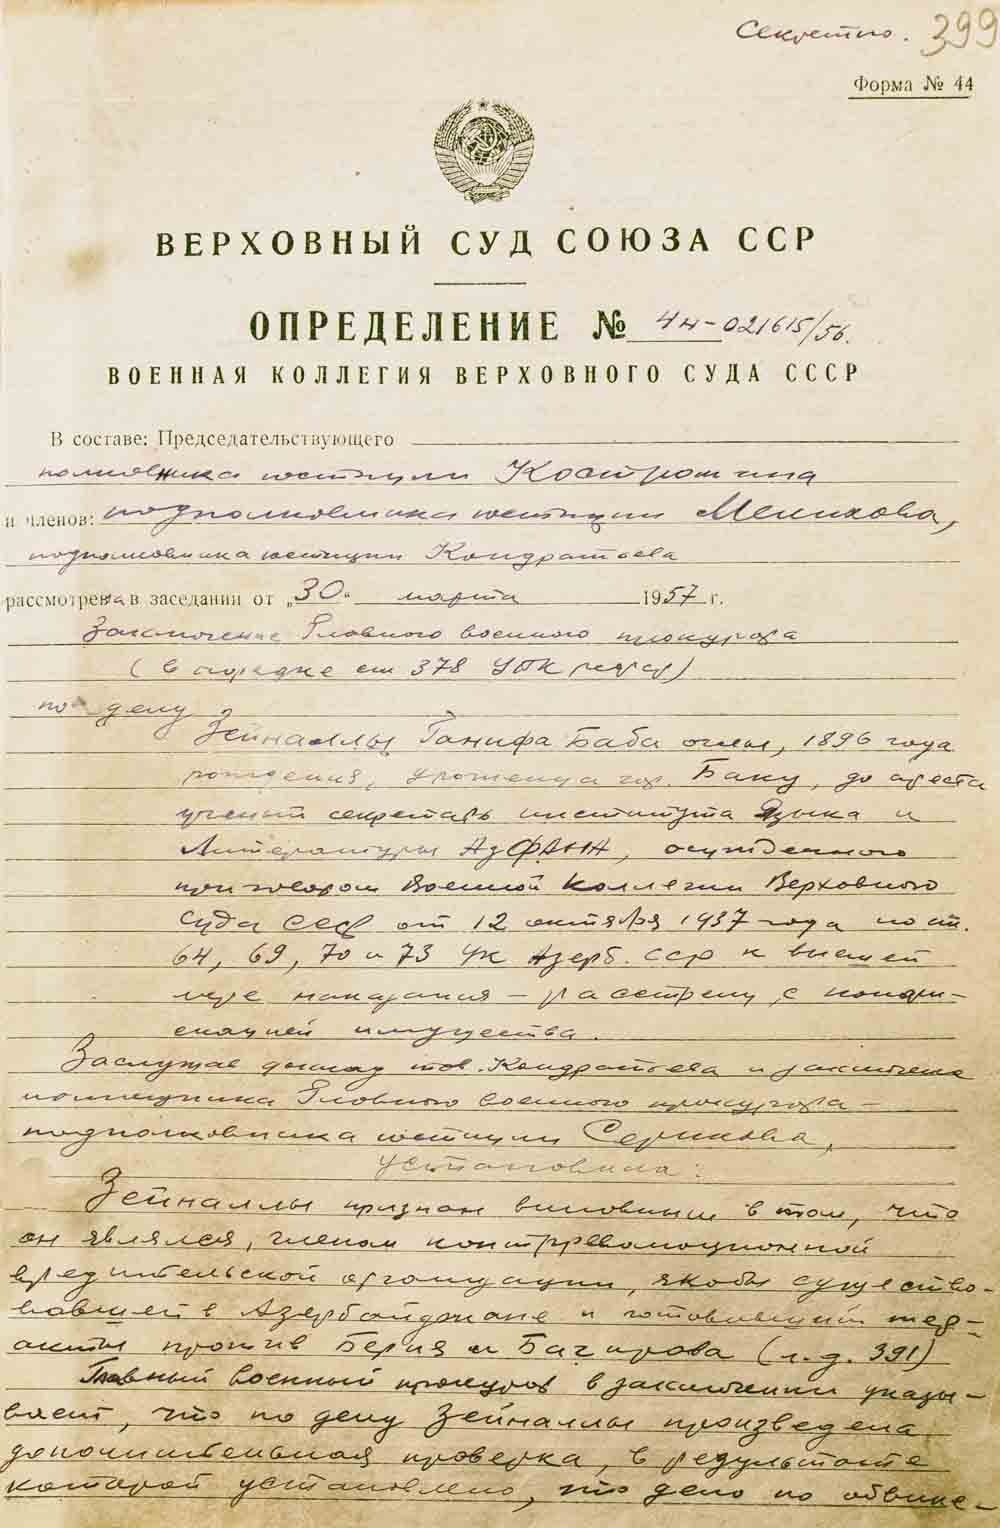 Секретно. 399
Форма № 44
ВЕРХОВНЫЙ СУД СОЮЗА ССР
ОПРЕДЕЛЕНИЕ № 4н-021615/56.
ВОЕННАЯ КОЛЛЕГИЯ ВЕРХОВНОГО СУДА СССР
В составе: Председательствующего
полковника юстиции Костромина
и членов: подполковника юстиции Мелихова,
подполковника юстиции Кондратьева
рассмотрена в заседании от „30" марта 1957 г.
Заключение Главного военного прокурора
(в порядке ст 378 УПК)
по делу
Зейналлы Ганифа Баба оглы, 1896 года
рождения, уроженца гор. Баку, до ареста
ученый секретарь института Языка и
Литературы АзФАНА, осужденного
приговором Военной Коллегии Верховного
Суда СССР от 12 октября 1937 года по ст.
64, 69, 70 и 73 УК Азерб. ССР к высшей
мере наказания – расстрелу, с конфи-
скацией имущества.
Заслушав доклад тов. Кондратьева и заключение
помощника Главного военного прокурора –
подполковника юстиции
установила:
Зейналлы признан виновным в том, что
он являлся, членом контрреволюционной
вредительской организации, якобы существо-
вавшей в Азербайджане и готовившей тер-
акты против Берия и Багирова (л.д. 391)
Главный военный прокурор в заключении указы-
вает, что по делу Зейналлы произведена
дополнительная проверка, в результате
которой установлено, что дело по обвине-